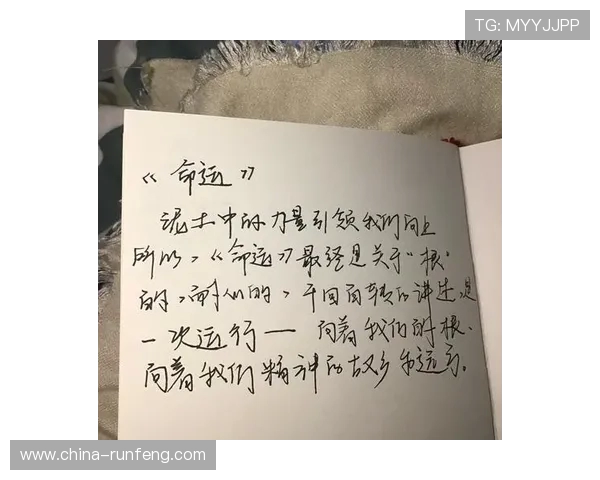 TG: MYYJJPP
《命运》
泥土中的力量引领我们向上
所以，《命运》最终是关于“根”
的，耐人的，千回百转的讲述，是
一次远行——向着我们的根，
向着我们精神的故乡和远方。
www.china-runfeng.com